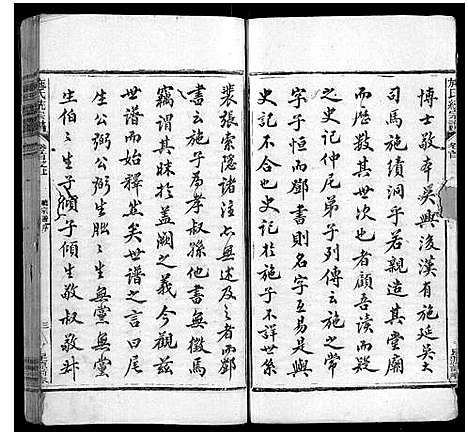 博士敬本吳興後漢有施延吳大
司馬施績洞乎若親造其堂廟
而歷數其世次也者顧吾讀而疑
之史記仲尼弟子列傳云施之常
字子恒而鄭書則名字互易是與
史記不合也史記於施子不詳世系
裴張索隱諸注亦無述及之者而鄧
書云施子為孝叔孫他書無徵焉
竊謂其昧於蓋闕之義今觀茲
世譜而始豈矣世譜之言曰尾
生公弼公弼生朏朏生無黨無黨
生伯伯生子傾子傾生敬叔敬叔
施氏統宗譜
卷首之上
統宗譜序
三
施氏統宗譜
卷首